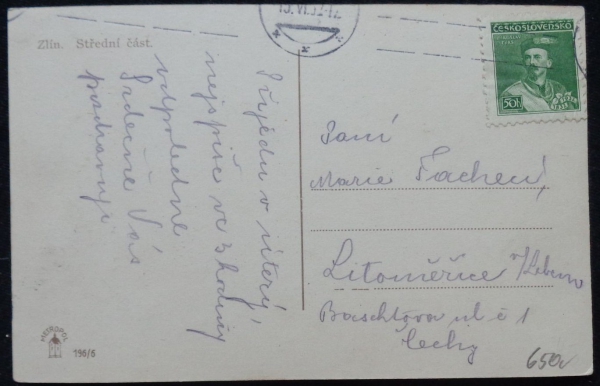 Zlín. Střední část.
Přijedu v úterý
nejspíše ve 3 hodiny
odpoledne
Srdečně Vás
pozdravuji
ČESKOSLOVENSKO
50h
Paní
Marie
Litoměřice n/Labem
ul č 1
Čechy
METROPOL
196/6